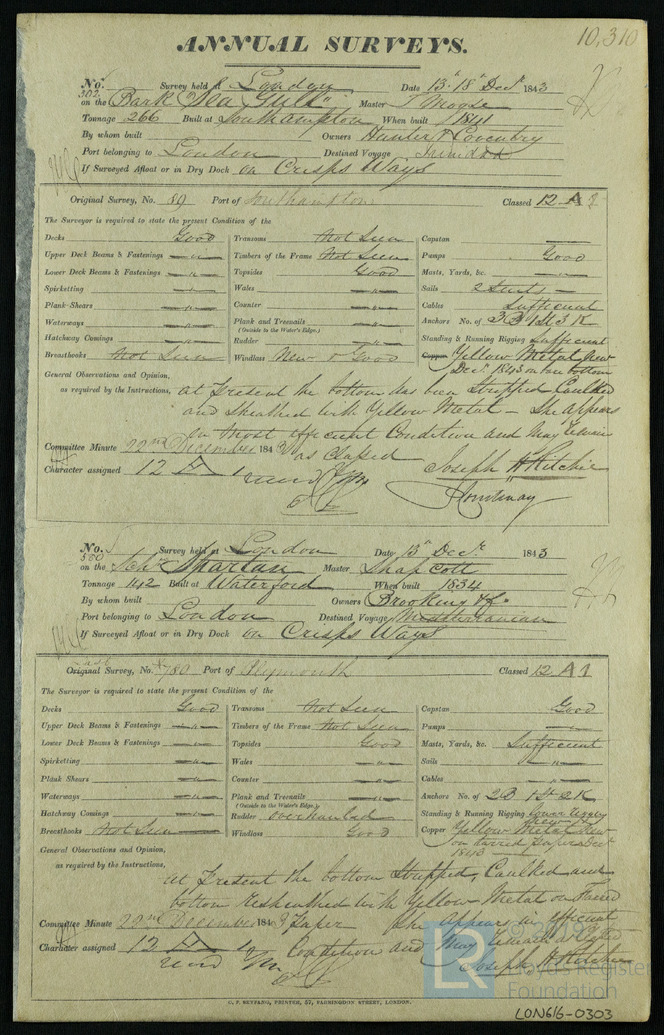 10,310
ANNUAL SURVEYS.
No. 302. Survey held at London Date 13th 18th Decr. 1843
on the Bark "Sea Gull" Master
Tonnage 266 Built at Southampton When built 1841
By whom built Owners Hunter & Coventry
Port belonging to London Destined Voyage Trinidad
If Surveyed Afloat or in Dry Dock on Crisps Ways
Original Survey, No. 89 Port of Southampton Classed 12 A 1
The Surveyor is required to state the present Condition of the
Decks Good Transoms Not Seen Capstan
Upper Deck Beams & Fastenings " Timbers of the Frame Not Seen Pumps Good
Lower Deck Beams & Fastenings " Topsides Good Masts, Yards, &c. "
Spirketting " Wales " Sails 2 Suits
Plank-Shears " Counter " Cables Sufficient
Waterways " Plank and Treenails " Anchors No. of 3B 1St 3K
(Outside to the Water's Edge.)
Hatchway Comings " Rudder " Standing & Running Rigging Sufficient
Breasthooks Not Seen Windlass New & Good Copper Yellow Metal New
Decr. 1843 on bottom
General Observations and Opinion,
as required by the Instructions, at Present the bottom has been Stripped Caulked
and Sheathed with Yellow Metal – She appears
in most efficient Condition and May remain
Committee Minute 22nd December 1843 as Classed
Character assigned 12 A 1 Joseph H Ritchie
No. 580 Survey held at London Date 13th Decr. 1843
on the Schr Spartan Master Shapcott
Tonnage 142 Built at Waterford When built 1834
By whom built Owners Brooking & Co
Port belonging to London Destined Voyage Mediterranean
If Surveyed Afloat or in Dry Dock on Crisps Ways
Last
Original Survey, No. 780 Port of Plymouth Classed 12 A 1
The Surveyor is required to state the present Condition of the
Decks Good Transoms Not Seen Capstan Good
Upper Deck Beams & Fastenings " Timbers of the Frame Not Seen Pumps "
Lower Deck Beams & Fastenings " Topsides Good Masts, Yards, &c. Sufficient
Spirketting " Wales " Sails "
Plank Shears " Counter " Cables "
Waterways " Plank and Treenails " Anchors No. of 2B 1St 2K
(Outside to the Water's Edge.)
Hatchway Comings " Rudder overhauled Standing & Running Rigging lower rigging
new
Breasthooks Not Seen Windlass Good Copper Yellow Metal New
on tarred paper Decr
1843
General Observations and Opinion,
as required by the Instructions, at Present the bottom Stripped, Caulked and
bottom resheathed with Yellow Metal on Tarred
Committee Minute 22nd December 1843 Paper She appears in efficient
Character assigned 12 A 1 Condition and May remain as Classed
Joseph H Ritchie
C. F. SEYFANG, PRINTER, 57, FARRINGDON STREET, LONDON.
LR
© 2019
Lloyd's Register
Foundation
LON616-0303